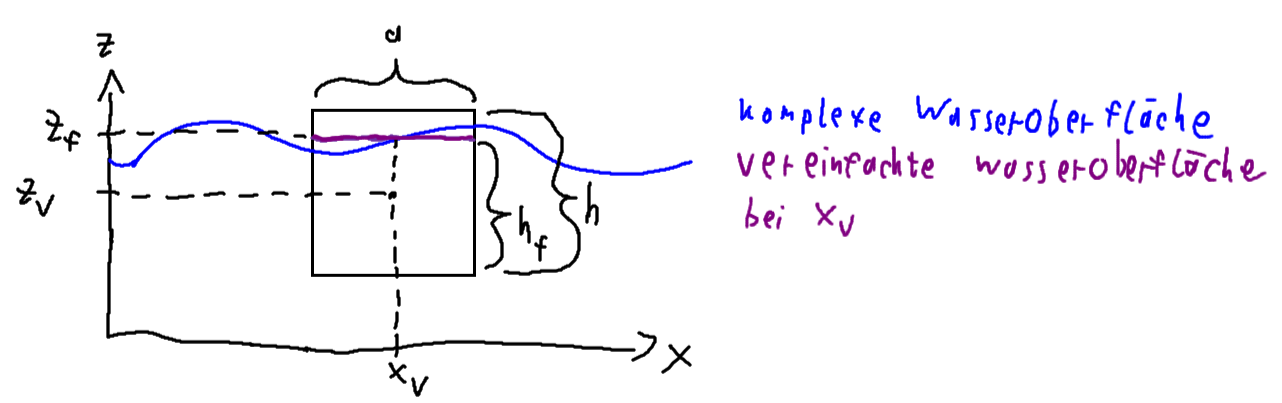 a
z
z_f
z_v
h_f
h
x_v
x
komplexe Wasseroberfläche
vereinfachte wasseroberfläche
bei x_v